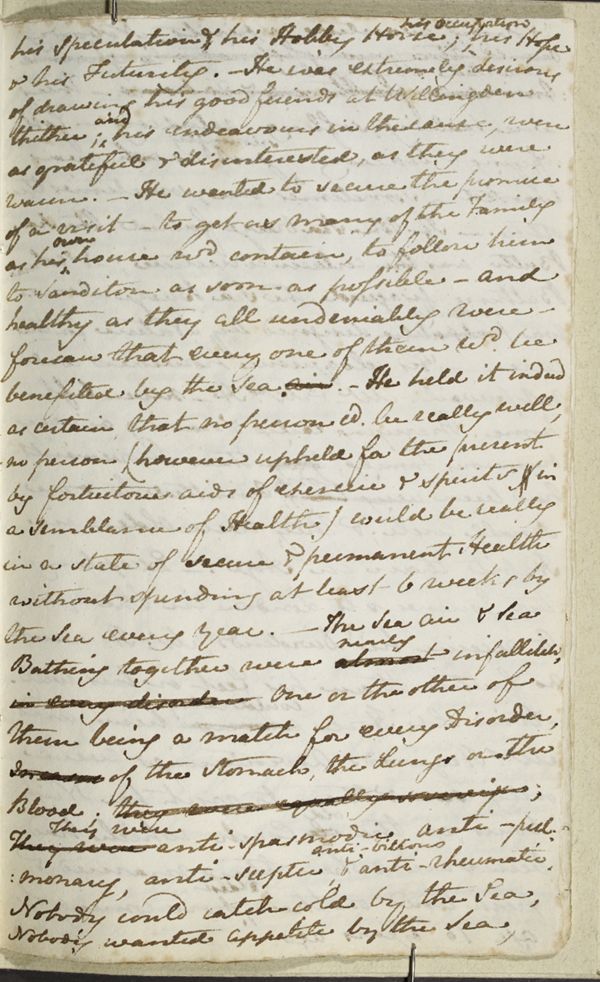 his Speculation & his Hobby Horse; his Occupation his Hope
& his Futurity. – He was extremely desirous
of drawing his good friends at Willingden
thither; and his endeavours in the cause, were
as grateful & disinterested, as they were
warm. – He wanted to secure the promise
of a visit – to get as many of the Family
as his own house wd. contain, to follow him
to Sanditon as soon as possible – and
healthy as they all undeniably were –
foresaw that every one of them wd. be
benefited by the Sea air. – He held it indeed
as certain, that no person cd. be really well,
no person (however upheld for the present
by fortuitous aids of exercise & spirits in
a semblance of Health) could be really
in a state of secure & permanent Health
without spending at least 6 weeks by
the Sea every year. – The Sea air & Sea
Bathing together were nearly almost infallible,
in every disorder One or the other of
them being a match for every Disorder,
of the Stomach, the Lungs or the
Blood; they were equally sovereign;
They were They were anti-spasmodic, anti-pul-
:monary, anti-sceptic, anti-bilious & anti-rheumatic.
Nobody could catch cold by the Sea,
Nobody wanted appetite by the Sea,